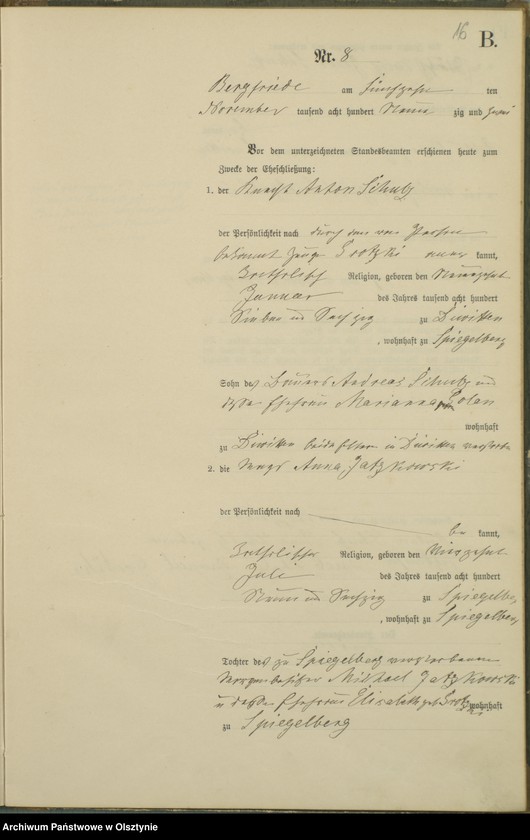 16
B.
Nr. 8
Bergfriede am fünfzehn ten
November tausend acht hundert Neun zig und zwei
Vor dem unterzeichneten Standesbeamten erschienen heute zum
Zwecke der Eheschließung:
1. der Knecht Anton Schulz
der Persönlichkeit nach durch den von Person
bekannten Zeugen kannt,
katholischer Religion, geboren den
Januar des Jahres tausend acht hundert
Sieben und Sechzig zu Diwitten
, wohnhaft zu Spiegelberg
Sohn des Bauers Andreas Schulz und
dessen Ehefrau Marianna
wohnhaft
zu Diwitten beide Eltern in Diwitten verstorben
2. die Anna Jatzkowski
der Persönlichkeit nach
be kannt,
katholischer Religion, geboren den vierzehnten
Juli des Jahres tausend acht hundert
Neun und Sechzig zu Spiegelberg
, wohnhaft zu Spiegelberg
Tochter des zu Spiegelberg verstorbenen
Michael Jatzkowski
u dessen Ehefrau Elisabeth geb wohnhaft
zu Spiegelberg
Archiwum Państwowe w Olsztynie